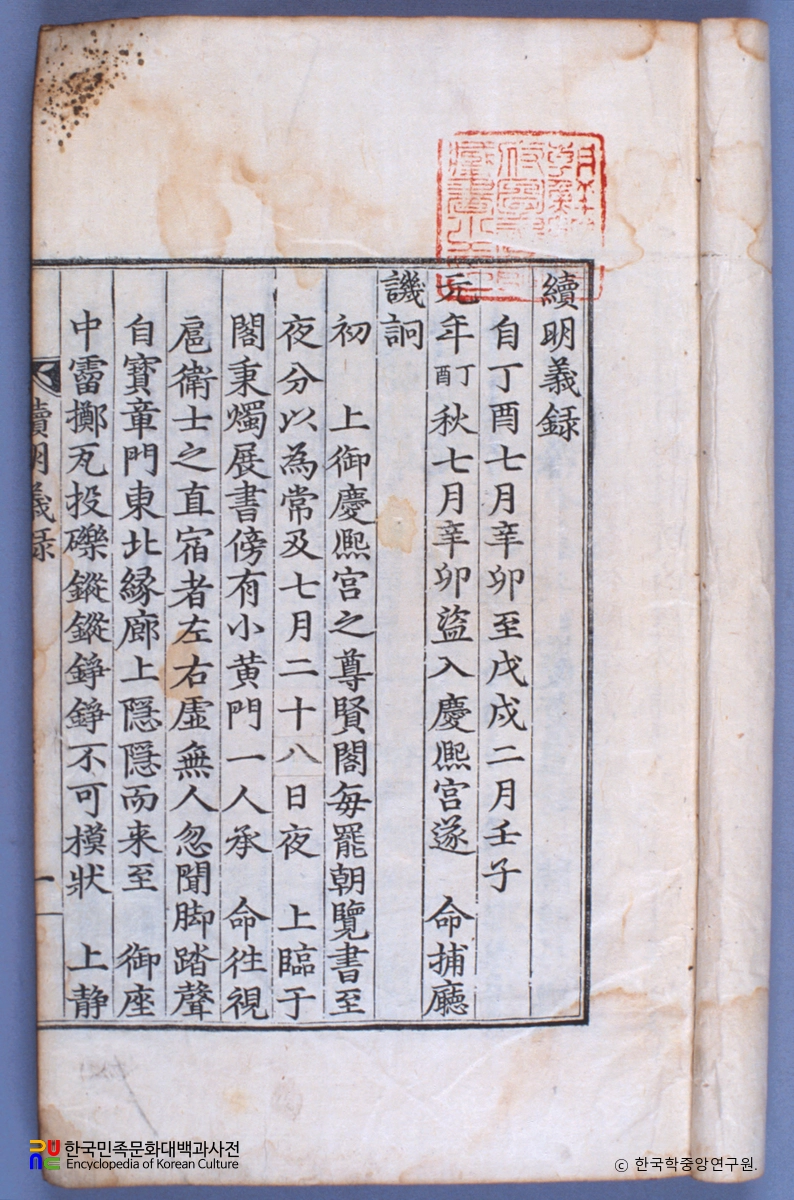 續明義録
自丁酉七月辛卯至戊戍二月壬子
元年丁酉秋七月辛卯盜入慶熙宮遂 命捕廳
譏詗
初 上御慶熙宮之尊賢閣每罷朝覽書至
夜分以為常及七月二十八日夜 上臨于
閣秉燭展書傍有小黄門一人承 命徃視
扈衛士之直宿者左右虛無人忽聞脚踏聲
自寳章門東北緣廊上隠隠而来至 御座
中霤擲瓦投礫鏦鏦錚錚不可摸狀 上静
續明義録
一
한국민족문화대백과사전
Encyclopedia of Korean Culture
ⓒ 한국학중앙연구원.